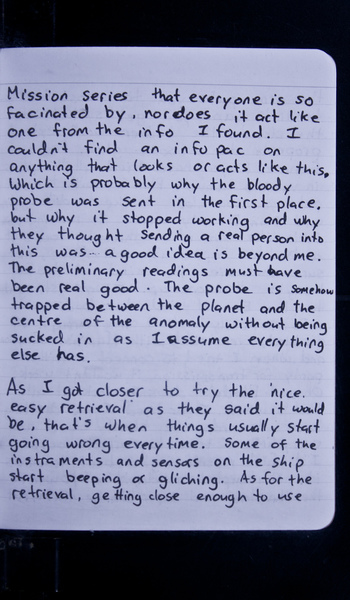 Mission series that everyone is so
facinated by, nor does it act like
one from the info I found. I
couldn't find an info pac on
anything that looks or acts like this.
Which is probably why the bloody
probe was sent in the first place.
but why it stopped working and why
they thought sending a real person into
this was a good idea is beyond me.
The preliminary readings must have
been real good. The probe is somehow
trapped between the planet and the
centre of the anomaly without being
sucked in as I assume everything
else has.
As I got closer to try the 'nice.
easy retrieval' as they said it would
be, that's when things usually start
going wrong everytime. Some of the
instraments and sensors on the ship
start beeping or gliching. As for the
retrieval, getting close enough to use